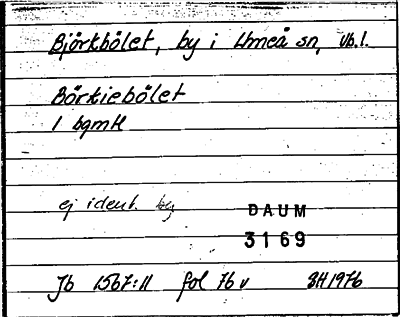 Björkbölet, by i Umeå sn, Vb.l.
Börkiebölet
1 bgmH
ej ident. by
DAUM
3169
Jb 1567:11 fol 76 v SH 1976